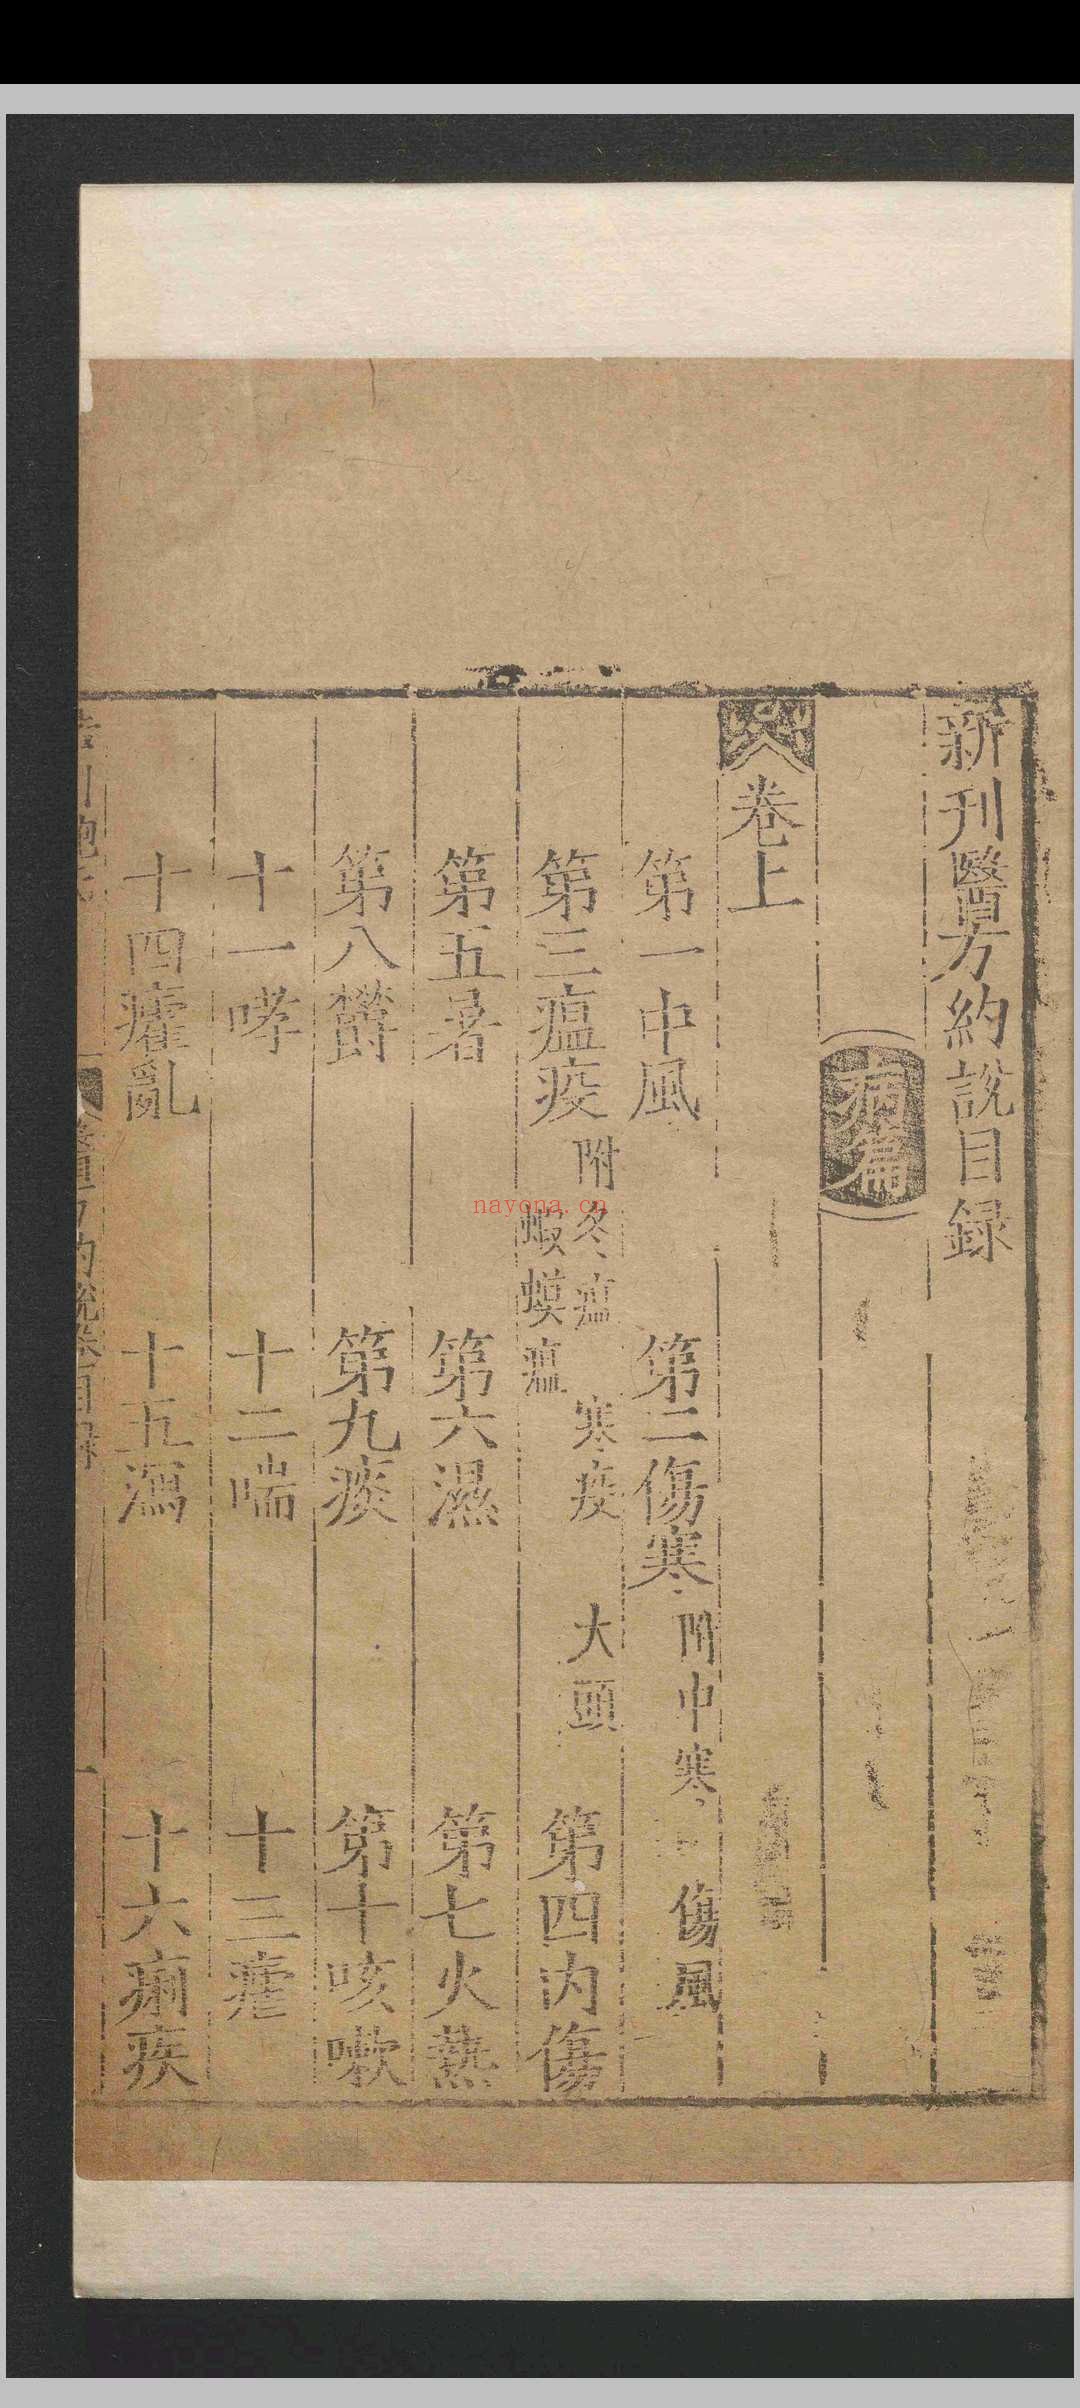 新刊醫方約說目録
病篇
卷上
第一中風 第二傷寒 附中寒 傷風
第三瘟疫 附冬瘟 寒疫 大頭 蝦蟆瘟 第四内傷
第五暑 第六濕 第七火熱
第八欝 第九痰 第十咳嗽
十一哮 十二喘 十三瘧
十四癨亂 十五瀉 十六痢疾
nayona.cn